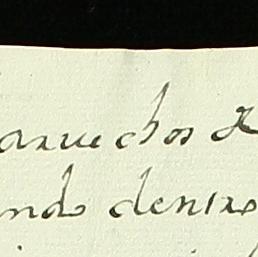 aruechos d
ndo dentro